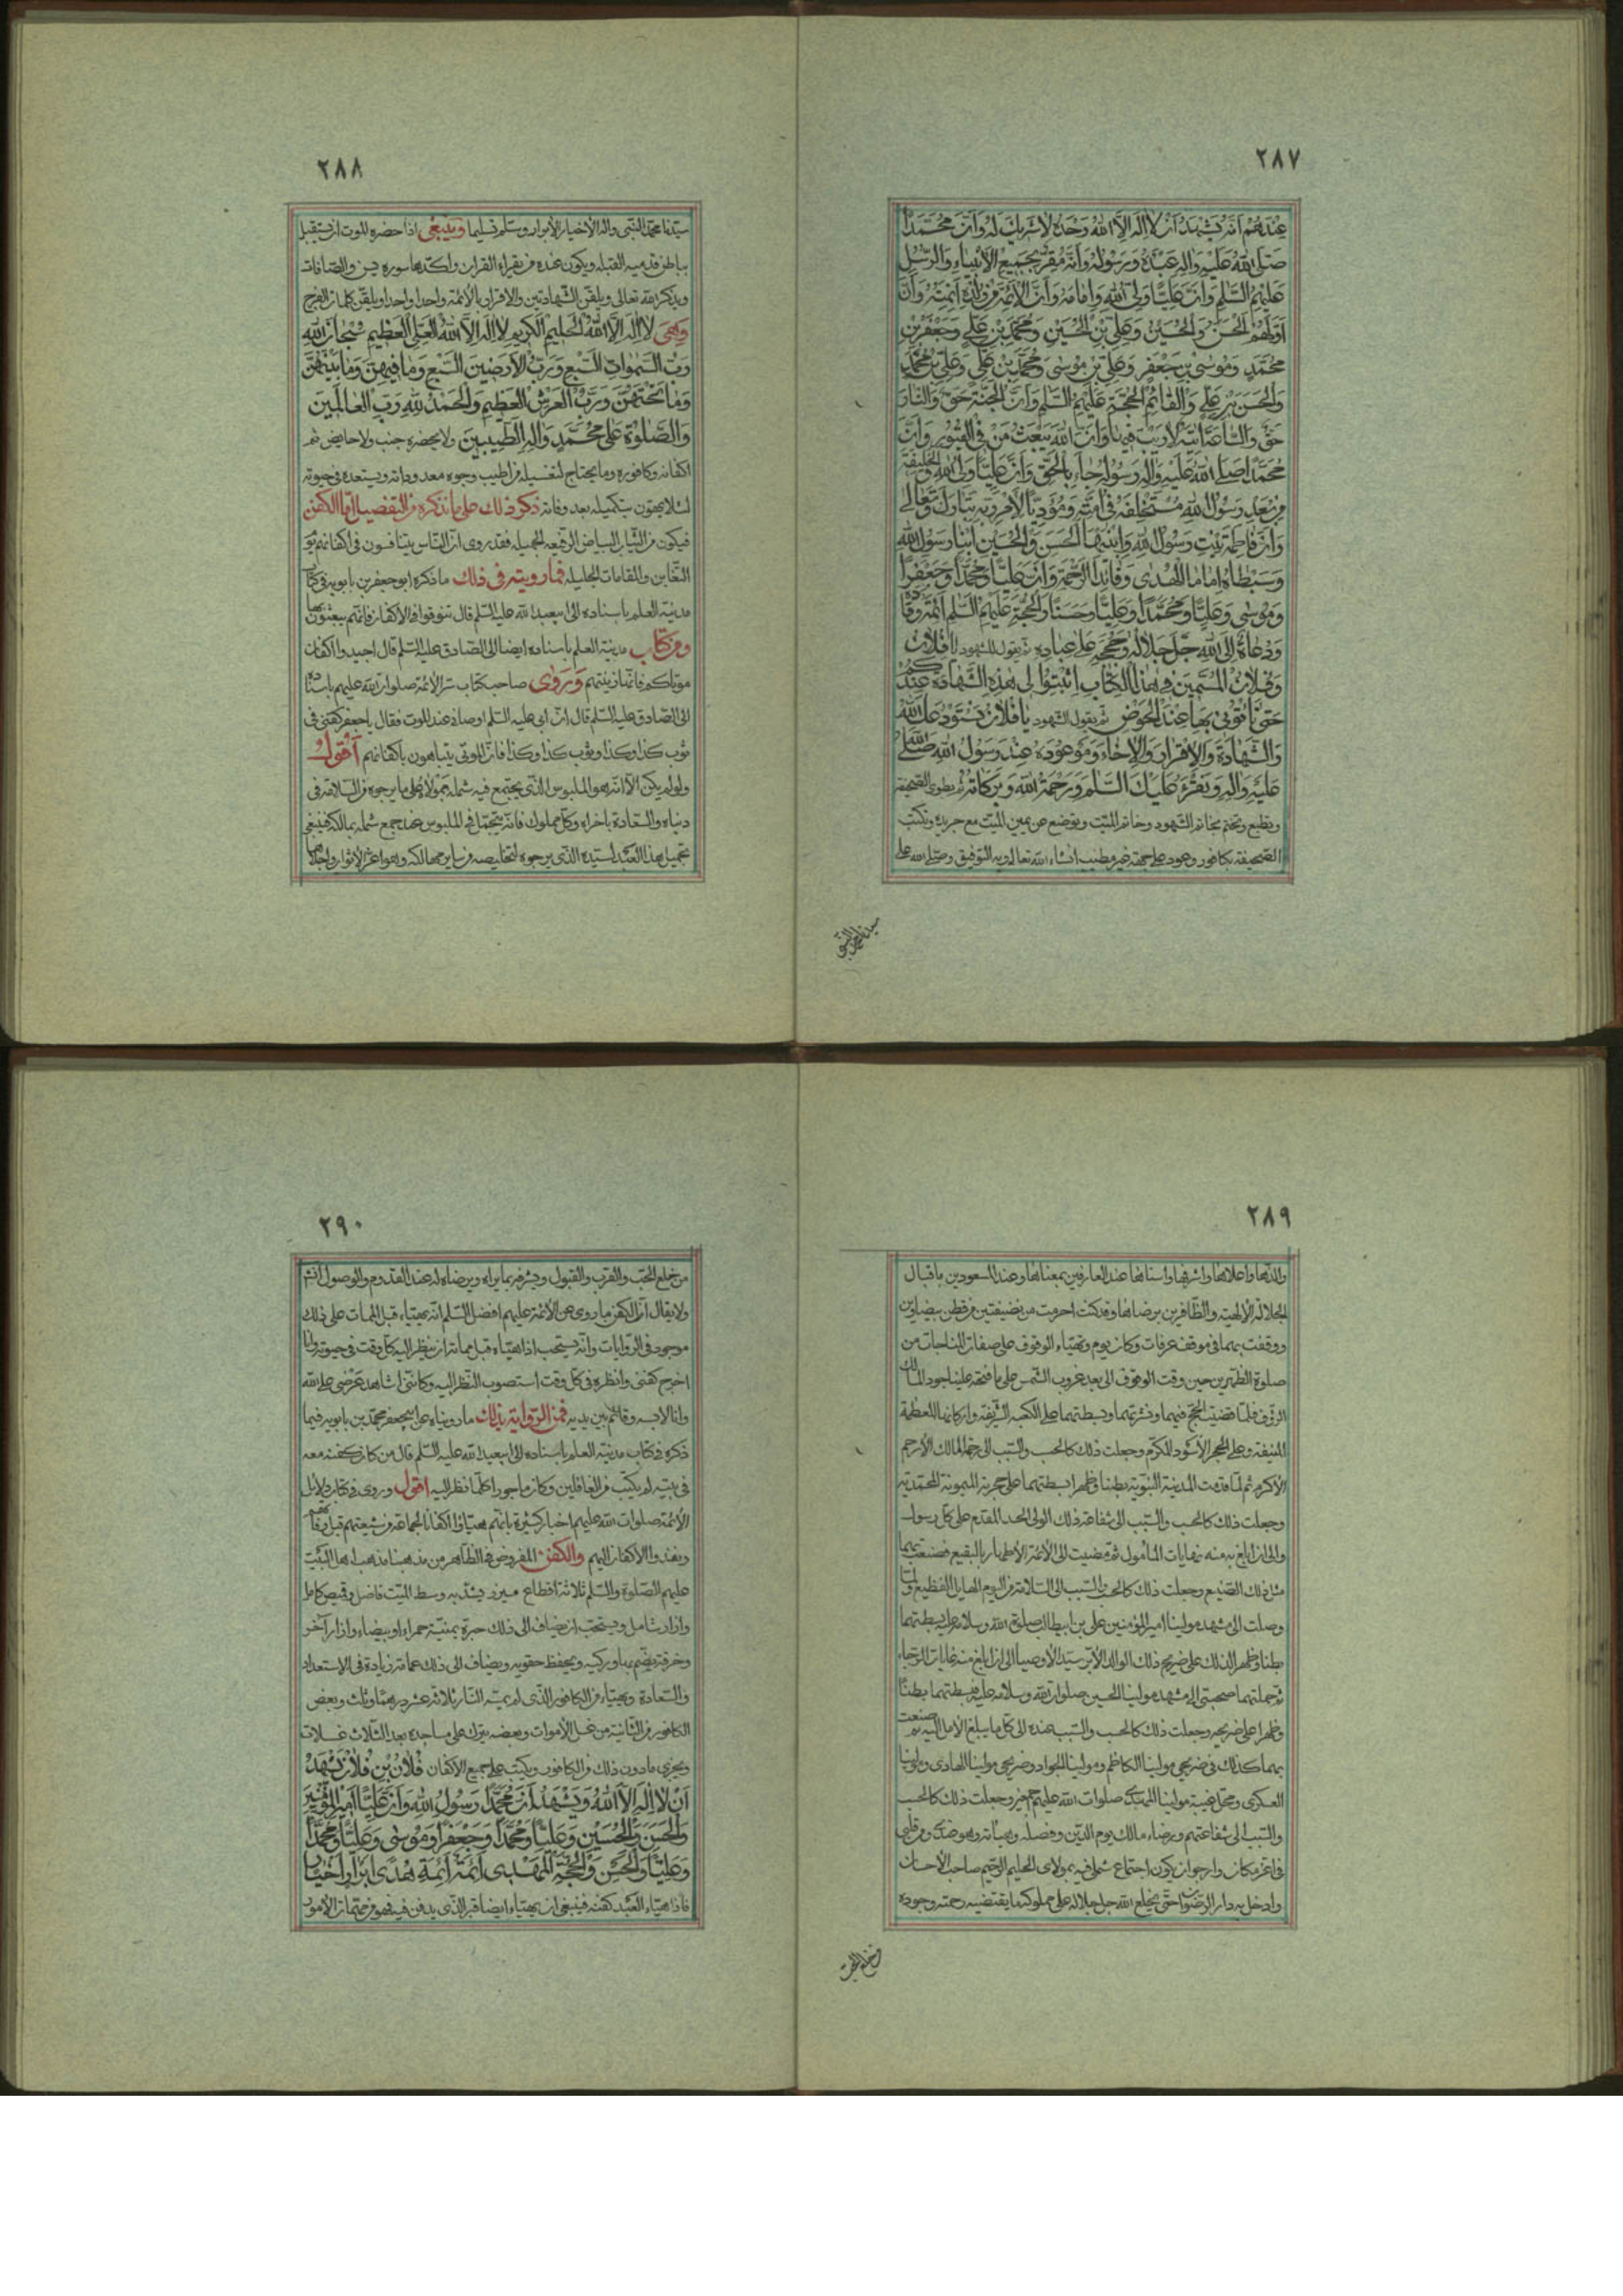 ٢٨٧
عِنْدَهُمْ اَنَّهُ يَشْهَدُ اَنْ لا اِلٰهَ اِلَّا اللهُ وَحْدَهُ لا شَرِيكَ لَهُ وَاَنَّ مُحَمَّدًا
صَلَّى اللهُ عَلَيْهِ وَاٰلِهِ عَبْدُهُ وَرَسُولُهُ وَاَنَّهُ مُقِرٌّ بِجَمِيعِ الْاَنْبِيَاءِ وَالرُّسُلِ
عَلَيْهِمُ السَّلٰمُ وَاَنَّ عَلِيًّا وَلِيُّ اللهِ وَاِمَامُهُ وَاَنَّ الْاَئِمَّةَ مِنْ وُلْدِهِ اَئِمَّتُهُ وَاَنَّ
اَوَّلَهُمُ الْحَسَنُ وَالْحُسَيْنُ وَعَلِيُّ بْنُ الْحُسَيْنِ وَمُحَمَّدُ بْنُ عَلِيٍّ وَجَعْفَرُ بْنُ
مُحَمَّدٍ وَمُوسَى بْنُ جَعْفَرٍ وَعَلِيُّ بْنُ مُوسٰى وَمُحَمَّدُ بْنُ عَلِيٍّ وَعَلِيُّ بْنُ مُحَمَّدٍ
وَالْحَسَنُ بْنُ عَلِيٍّ وَالْقَائِمُ الْحُجَّةُ عَلَيْهِمُ السَّلٰمُ وَاَنَّ الْجَنَّةَ حَقٌّ وَالنَّارَ
حَقٌّ وَالسَّاعَةَ اٰتِيَةٌ لا رَيْبَ فِيهَا وَاَنَّ اللهَ يَبْعَثُ مَنْ فِي الْقُبُورِ وَاَنَّ
مُحَمَّدًا صَلَّى اللهُ عَلَيْهِ وَاٰلِهِ رَسُولُهُ جَاءَ بِالْحَقِّ وَاَنَّ عَلِيًّا وَلِيُّ اللهِ وَالْخَلِيفَةُ
مِنْ بَعْدِ رَسُولِ اللهِ مُسْتَخْلَفُهُ فِي اُمَّتِهِ وَمُؤَدِّيًا لِاَمْرِ رَبِّهِ تَبَارَكَ وَتَعَالٰى
وَاَنَّ فَاطِمَةَ بِنْتُ رَسُولِ اللهِ وَابْنَيْهَا الْحَسَنَ وَالْحُسَيْنَ ابْنَا رَسُولِ اللهِ
وَسِبْطَاهُ اِمَامَا الْهُدٰى وَقَائِدَا الرَّحْمَةِ وَاَنَّ عَلِيًّا وَمُحَمَّدًا وَجَعْفَرًا
وَمُوسٰى وَعَلِيًّا وَمُحَمَّدًا وَعَلِيًّا وَحَسَنًا وَالْحُجَّةَ عَلَيْهِمُ السَّلٰمُ اَئِمَّةٌ وَقَادَةٌ
وَدُعَاةٌ اِلَى اللهِ جَلَّ جَلالُهُ وَحُجَّةٌ عَلٰى عِبَادِهِ ثم يقول للشهود يَا فُلانُ
وَفُلانُ الْمُسَمَّيْنَ فِي هٰذَا الْكِتَابِ اَثْبِتُوا لِي هٰذِهِ الشَّهَادَةَ عِنْدَكُمْ
حَتّٰى تَلْقَوْنِي بِهَا عِنْدَ الْحَوْضِ ثم يقول الشهود يَا فُلانُ نَسْتَوْدِعُكَ اللهَ
وَالشَّهَادَةَ وَالْاِقْرَارَ وَالْاِخَاءَ وَمَوْعُودَةٌ عِنْدَ رَسُولِ اللهِ صَلَّى اللهُ
عَلَيْهِ وَاٰلِهِ وَنَقْرَءُ عَلَيْكَ السَّلٰمَ وَرَحْمَةَ اللهِ وَبَرَكَاتِهِ ثم تطوى الصحيفة
وتطبع وتختم بخاتم الشهود وخاتم الميت وتوضع عن يمين الميت مع جريدة وتكتب
الصحيفة بكافور وعود على جهته غير مطيب انشاء الله تعالى وبه التوفيق وصلى الله على
سيدنا محمد النبى
٢٨٨
سيدنا محمد النبى واله الاخيار الابرار وسلم تسليما وينبغى اذا حضره الموت ان يستقبل
بباطن قدميه القبلة ويكون عنده من يقرء القران واكّدها سورة يس والصافات
ويذكر الله تعالى ويلقن الشهادتين والاقرار بالائمة واحدا واحدا ويلقن كلمات الفرج
وَهِيَ لا اِلٰهَ اِلَّا اللهُ الْحَلِيمُ الْكَرِيمُ لا اِلٰهَ اِلَّا اللهُ الْعَلِيُّ الْعَظِيمُ سُبْحَانَ اللهِ
رَبِّ السَّمٰوَاتِ السَّبْعِ وَرَبِّ الْاَرَضِينَ السَّبْعِ وَمَا فِيهِنَّ وَمَا بَيْنَهُنَّ
وَمَا تَحْتَهُنَّ وَرَبِّ الْعَرْشِ الْعَظِيمِ وَالْحَمْدُ لِلّٰهِ رَبِّ الْعَالَمِينَ
وَالصَّلٰوةُ عَلٰى مُحَمَّدٍ وَاٰلِهِ الطَّيِّبِينَ ولا يحضره جنب ولا حايض ثم
اكفانه وكافوره وما يحتاج لتغسيله من اطيب وجوه معدودانه ويستعده فى حيوته
لئلا يهون بتكميله بعد وفاته ذكر ذلك على ما نذكره من التفصيل امّا الكفن
فيكون من الثياب البياض الرفيعة الجميلة فقد روى ان الناس يتنافسون فى اكفانهم يوم
التغابن والمقامات الجليلة فما رويته فى ذلك ما ذكره ابوجعفر بن بابويه فى كتاب
مدينة العلم باسناده الى ابيعبدالله عليه السلم قال تنوقوا فى الاكفان فانكم تبعثون بها
ومن كتاب مدينة العلم باسناده ايضا الى الصادق عليه السلم قال اجيدوا اكفان
موتاكم فانها زينتهم وَرَوٰى صاحب كتاب سير الائمة صلوات الله عليهم باسناده
الى الصادق عليه السلم قال ان ابى عليه السلم اوصانى عند الموت فقال يا جعفر كفنى فى
ثوب كذا وكذا وثوب كذا وكذا فان الموتى يتباهون باكفانهم اَقُولُ
ولو لم يكن الا انه هو الملبوس الذى يجتمع فيه شمله بمولاه على ما يرجوه من السلامة فى
دنياه والسعادة باخراه وكل مملوك فانه يتجمل فى الملبوس عند جمع شمله بمالكه فينبغى
تجميل هذا العبد لسيده الذى يرجوه لتخليصه من ساير مهالكه وهو اعز الاثواب واجلها
٢٨٩
والذها واعلاها واشرفها واسناها عند العارفين بمعناها وعند المسعودين باقبال
الجلالة الالهية والظافرين برضاها وقد كنت احرمت من نصيفتين من قطن بيضاوين
ووقفت بهما فى موقف عرفات وكان يوم وتهياء الوقوف على صفات المناجات من
صلوة الظهرين حين وقت الوقوف الى بعد غروب الشمس على ما فتحه علينا جود المالك
الرؤف فلما قضيت الحج فيهما ونشرتهما وبسطتهما على الكعبة الشريفة واركانها المعظمة
المنيفة وعلى الحجر الاسود المكرم وجعلت ذلك كالحسب والسبب الى رحمة المالك الارحم
الاكرم ثم لما قدمت المدينة النبوية بطنا وظهرا بسطتهما على حجرته الميمونة المحمدية
وجعلت ذلك كالحسب والسبب الى شفاعة ذلك الولى الجد المقدم على كل رسول
والى ان ابلغ به منه نهايات المأمول ثم مضيت الى الائمة الاطهار بالبقيع فصنعت بهما
مثل ذلك الصنيع وجعلت ذلك كالحسب والسبب الى السلامة من اليوم الهايل الفظيع ولما
وصلت الى مشهد مولينا اميرالمؤمنين على بن ابيطالب صلوة الله وسلامه عليه بسطتهما
بطنا وظهرا لذلك على ضريح ذلك الوالد الابر سيد الاوصياء الى ان ابلغ منه غايات الرجاء
ثم حملتهما صحبتى الى مشهد مولينا الحسين صلوات الله وسلامه عليه فبسطتهما بطنا
وظهرا على ضريحه وجعلت ذلك كالحسب والسبب عنده الى كل ما يبلغ الامال اليه ثم صنعت
بهما كذلك فى ضريحى مولينا الكاظم ومولينا الجواد وضريحى مولينا الهادى ومولينا
العسكرى ومحل غيبة مولينا المهدى صلوات الله عليهم وجعلت ذلك كالحسب
والسبب الى شفاعتهم ورضاء مالك يوم الدين وفصله وهباته وهو عندى ومن قلبى
فى اعز مكان وارجو ان يكون اجتماع شملى فيه بمولاى الحليم الرحيم صاحب الاحسان
وادخل به دار الرضوان حتى يخلع الله جل جلاله على مملوكه ما يقتضيه رحمته وجوده
من خلع الحب
٢٩٠
من خلع الحب والقرب والقبول ويشرفه بما يراه ويرضاه له عند القدوم والوصول انشء
ولا يقال ان الكفن ما روى عن الائمة عليهم افضل السلم انه يهياء قبل الممات على ذلك
موجود فى الروايات وانه يستحب اذا هياه قبل مماته ان ينظر اليه كل وقت فى حيوته وانا
اخرج كفنى وانظره فى كل وقت استصوب النظر اليه وكاننى اشاهد عَرْضى على الله
وانا لابسه وقائم بين يديه فمن الرواية بذلك ما رويناه عن ابيجعفر محمد بن بابويه فيما
ذكره فى كتاب مدينة العلم باسناده الى ابيعبدالله عليه السلم قال من كان كفنه معه
فى بيته لم يكتب من الغافلين وكان ماجورا كلما نظر اليه اقول وروى فى كتاب دلايل
الائمة صلوات الله عليهم اخبار كثيرة بانهم هياؤا اكفانا لجماعة من شيعتهم قبل وفاتهم
ونفذوا الاكفان اليهم والكفن المفروض فى الظاهر من مذهبنا مذهب اهل البيت
عليهم الصلوة والسلم ثلاثة اقطاع ميزر يشد به وسط الميت فاضل وقميص كامل
وازار شامل ويستحب ان يضاف الى ذلك حبرة يمنية حمراء او بيضاء وازار آخر
وخرقة يضم بها وركيه ويحفظ حقويه ويضاف الى ذلك عمامة زيادة فى الاستعداد
والسعادة ويهياء من الكافور الذى لم يمسه النار ثلاثة عشر درهما وثلث وبعض
الكافور فى الثانية من غسل الاموات وبعضه يترك على مساجده بعد الثلاث غسلات
ويجزى ما دون ذلك من الكافور ويكتب على جميع الاكفان فُلانُ بْنُ فُلانٍ يَشْهَدُ
اَنْ لا اِلٰهَ اِلَّا اللهُ وَيَشْهَدُ اَنَّ مُحَمَّدًا رَسُولُ اللهِ وَاَنَّ عَلِيًّا اَمِيرُ الْمُؤْمِنِينَ
وَالْحَسَنَ وَالْحُسَيْنَ وَعَلِيًّا وَمُحَمَّدًا وَجَعْفَرًا وَمُوسٰى وَعَلِيًّا وَمُحَمَّدًا
وَعَلِيًّا وَالْحَسَنَ وَالْحُجَّةَ الْمَهْدِىَّ اَئِمَّتُهُ اَئِمَّةُ هُدًى اَبْرَارٌ اَخْيَارٌ
فاذا هياء العبد كفنه فينبغى ان يهياء ايضا قبره الذى يدفن فيه فهو من مهمات الامور